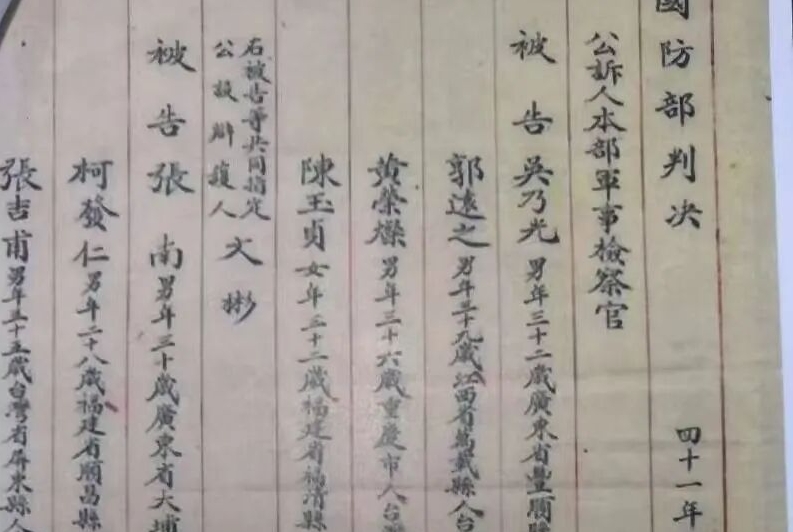 國防部判決 四十一年
公訴人本部軍事檢察官
被告吳乃光 男年三十二歲廣東省豐順縣
郭遠之 男年三十九歲江西省萬載縣人台
黃榮爃 男年三十六歲重慶市人台
陳玉貞 女年三十二歲福建省福清縣
右被告等共同指定
公設辯護人 文彬
被告張南 男年三十歲廣東省大埔
柯發仁 男年二十八歲福建省順昌縣
張吉甫 男年三十五歲台灣省屏東縣人